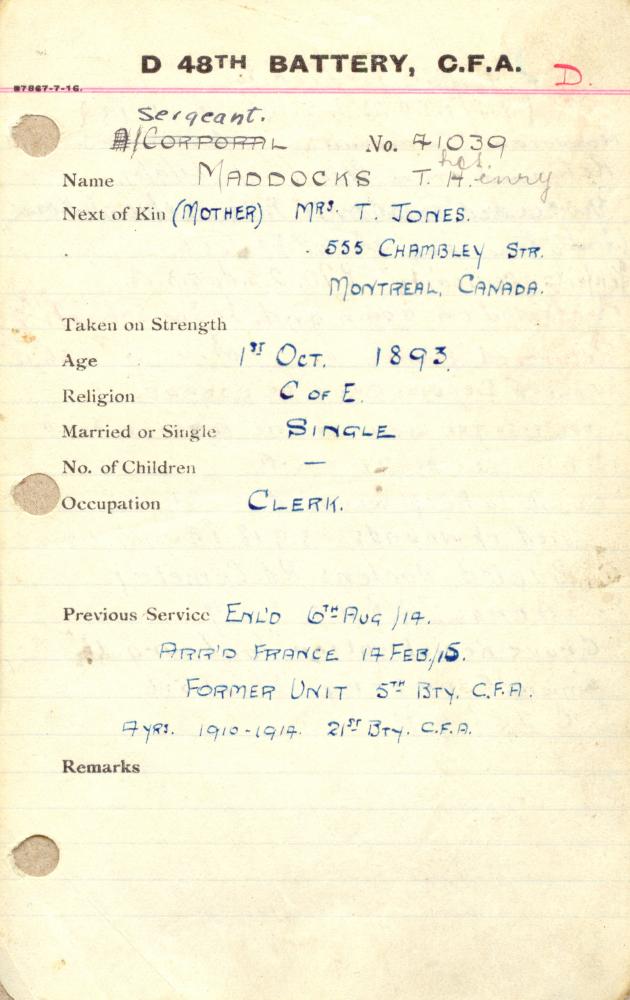 D 48TH BATTERY, C.F.A.
D.
B7867-7-16.
Sergeant.
A/CORPORAL No. 41039
Name MADDOCKS T. Henry
hos.
Next of Kin (MOTHER) MRS. T. JONES.
555 CHAMBLEY STR.
MONTREAL, CANADA.
Taken on Strength
Age 1ST OCT. 1893.
Religion C OF E.
Married or Single SINGLE
No. of Children —
Occupation CLERK.
Previous Service ENL'D 6TH AUG /14.
ARR'D FRANCE 14 FEB/15.
FORMER UNIT 5TH BTY. C.F.A.
4 YRS. 1910-1914. 21ST BTY. C.F.A.
Remarks